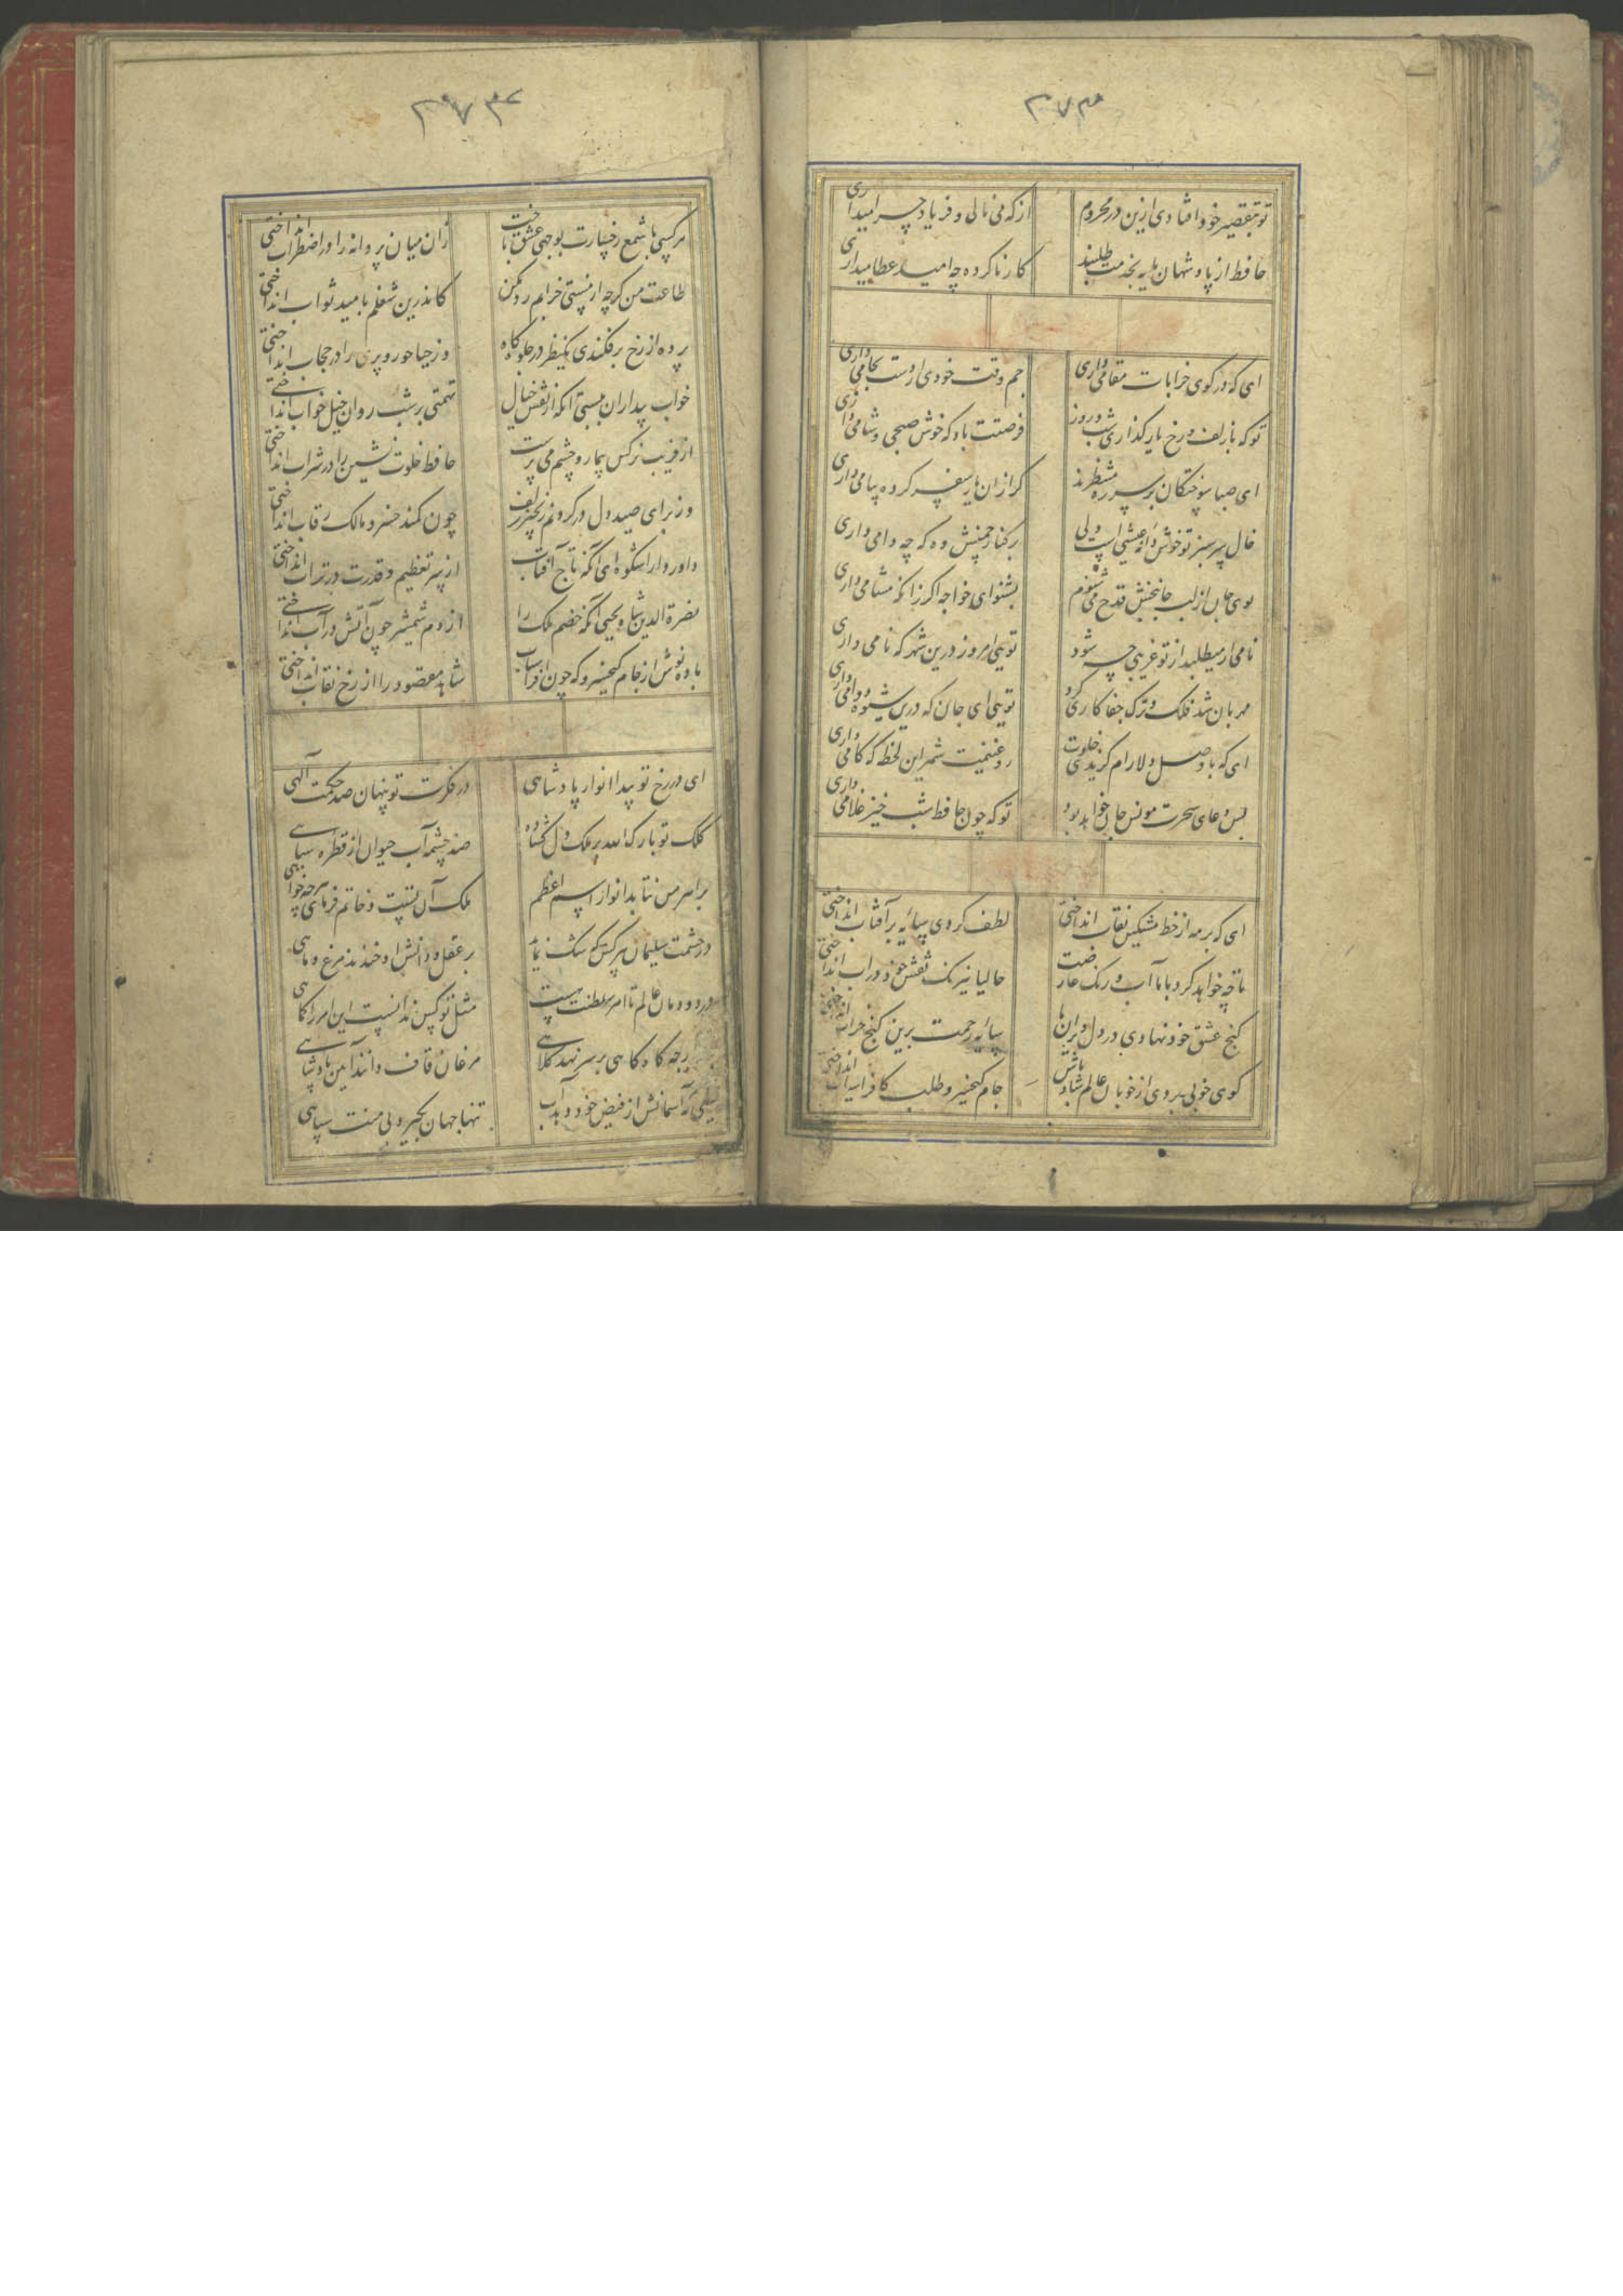 ۲۷۳
تو بتقصیر خود افتادی ازین در محروم
از که می نالی و فریاد چرا میداری
حافظ از پادشهان پایه بخدمت طلبند
کار ناکرده چه امید عطا میداری
ای که در کوی خرابات مقامی داری
جم وقت خودی ار دست بجامی داری
تو که با زلف و رخ یار گذاری شب و روز
فرصتت باد که خوش صبحی و شامی داری
ای صبا سوختگان بر سر ره منتظرند
گر از ان یار سفر کرده پیامی داری
خال سر سبز تو خوش دانه عیشی است ولی
بر کنار چمنش وه که چه دامی داری
بوی جان از لب جانبخش قدح می شنوم
بشنو ای خواجه اگر زانکه مشامی داری
نامی ار میطلبد از تو غریبی چه شود
تویی امروز درین شهر که نامی داری
مهربان شد فلک و ترک جفاکاری کرد
تویی ای جان که درین شیوه دوامی داری
ای که با وصل دلارام گزیدی خلوت
رو غنیمت شمر این لحظه که کامی داری
بس دعای سحرت مونس جان خواهد بود
تو که چون حافظ شب خیز غلامی داری
ای که بر مه از خط مشکین نقاب انداختی
لطف کردی سایه بر آفتاب انداختی
تا چه خواهد کرد با ما آب و رنگ عارضت
حالیا نیرنگ نقش خود در اب انداختی
گنج عشق خود نهادی در دل ویران ما
سایه رحمت برین کنج خراب انداختی
گوی خوبی بردی از خوبان عالم شاد باش
جام کیخسرو طلب کافراسیاب انداختی
۲۷۴
هر کسی با شمع رخسارت بوجهی عشق باخت
زان میان پروانه را در اضطراب انداختی
طاعت من گرچه از مستی خرابم رد مکن
کاندرین شغلم بامید ثواب انداختی
پرده از رخ برفکندی یکنظر در جلوه گاه
وز حیا حور و پری را در حجاب انداختی
خواب بیداران ببستی آنکه از نقش خیال
تهمتی بر شب روان خیل خواب انداختی
از فریب نرگس بیمار و چشم می پرست
حافظ خلوت نشین را در شراب انداختی
وز برای صید دل در گردنم زنجیر زلف
چون کمند خسرو مالک رقاب انداختی
داور دارا شکوه ای آنکه تاج آفتاب
از سر تعظیم و قدرت در تراب انداختی
نصرة الدین شاه یحیی آنکه خصم ملک را
از دم شمشیر چون آتش در آب انداختی
باده نوش از جام کیخسرو که چون افراسیاب
شاهد مقصود را از رخ نقاب انداختی
ای در رخ تو پیدا انوار پادشاهی
در فکرت تو پنهان صد حکمت آلهی
کلک تو بارک الله بر ملک و دل گشاده
صد چشمه آب حیوان از قطره سیاهی
بر اهرمن نتابد انوار اسم اعظم
ملک آن تست و خاتم فرمای هرچه خواهی
در حشمت سلیمان هر کس که شک نماید
بر عقل و دانش او خندند مرغ و ماهی
در دودمان عالم تا امر سلطنت هست
مثل تو کس ندانست این امر را کماهی
باز ارچه گاه گاهی بر سر نهد کلاهی
مرغان قاف دانند آیین پادشاهی
تیغی که آسمانش از فیض خود دهد آب
تنها جهان بگیرد بی منت سپاهی